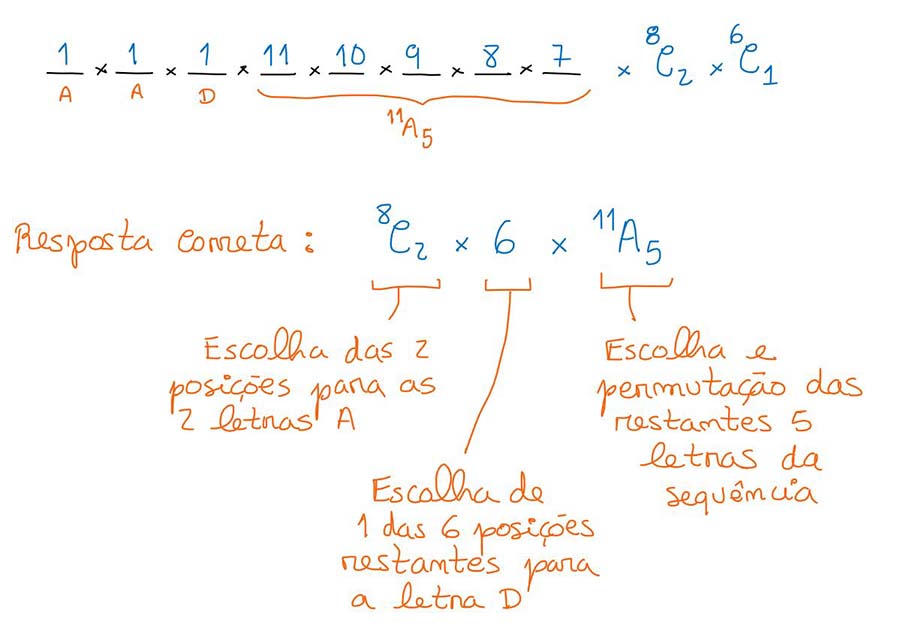 1 × 1 × 1 × 11 × 10 × 9 × 8 × 7 × ⁸C₂ × ⁶C₁
A A D
¹¹A₅
Resposta correta: ⁸C₂ × 6 × ¹¹A₅
Escolha das 2
posições para as
2 letras A
Escolha de
1 das 6 posições
restantes para
a letra D
Escolha e
permutação das
restantes 5
letras da
sequência